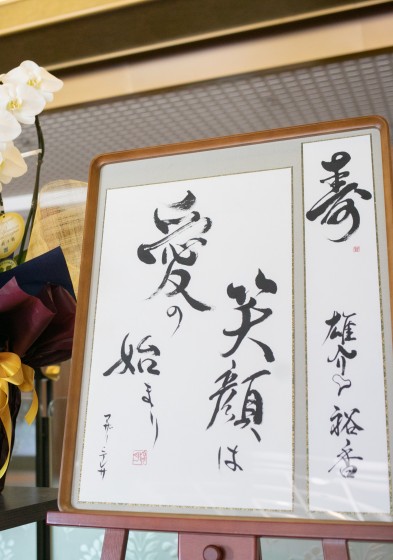 寿
雄介
裕香
笑顔は
愛の
始まり
マザー・テレサ